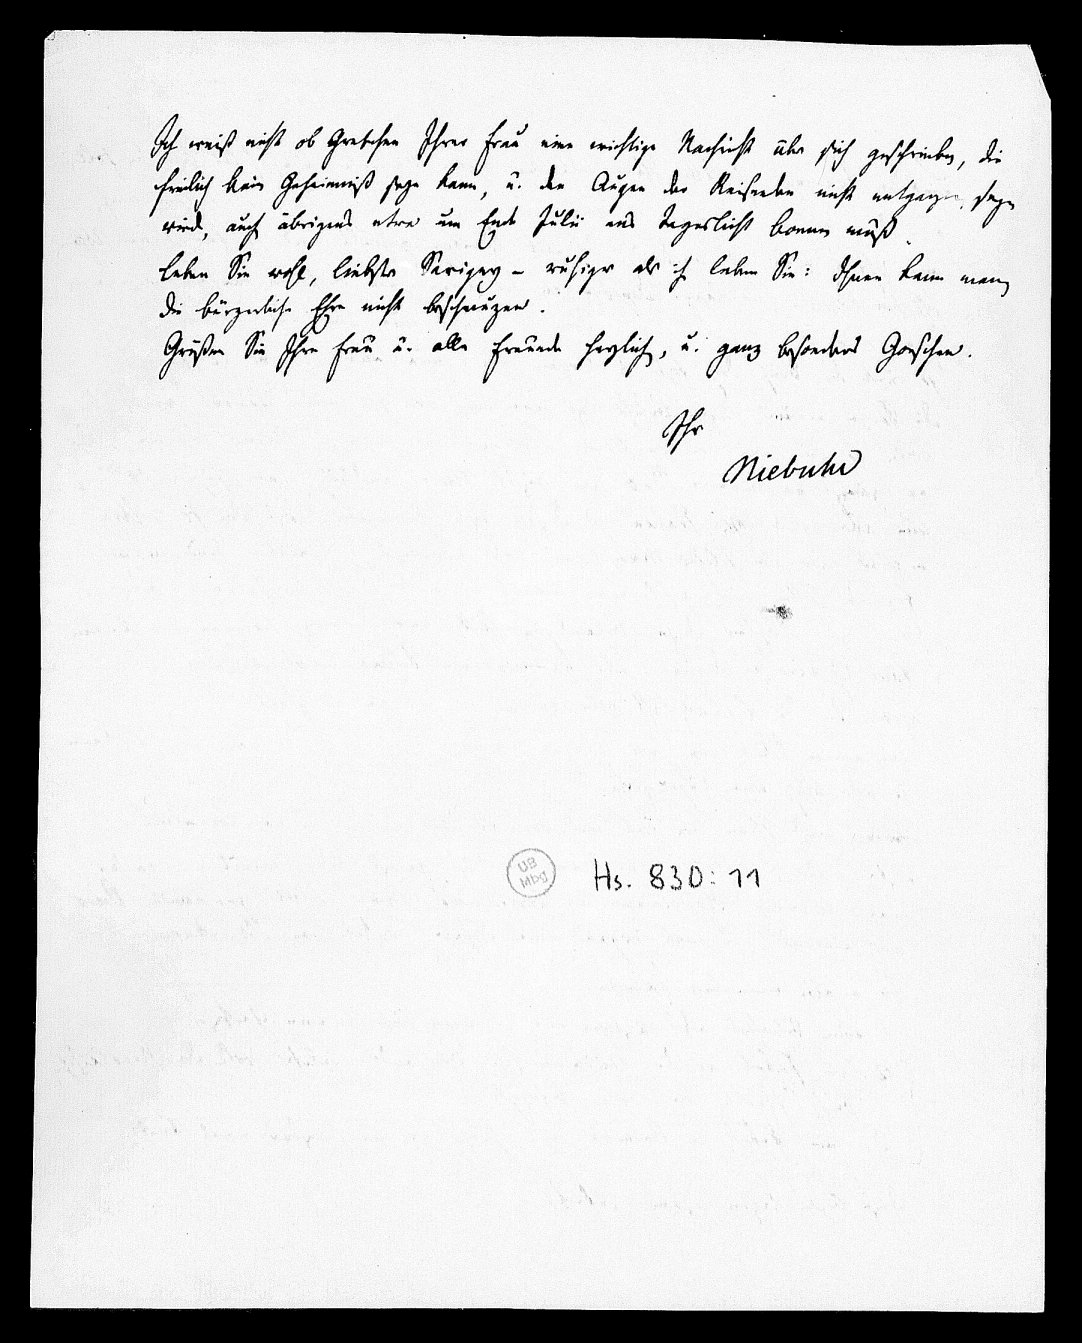 Ich weiß nicht ob Gretchen Ihrer Frau eine wichtige Nachricht über sich geschrieben, die
freilich kein Geheimniß seyn kann, u. den Augen der Reisenden nicht entgangen seyn
wird, auch übrigens etwa um Ende Julii ans Tageslicht kommen muß.
Leben Sie wohl, liebster Savigny – ruhiger als ich leben Sie: Ihnen kann man
die bürgerliche Ehre nicht beschmuzen.
Grüßen Sie Ihre Frau u. alle Freunde herzlich, u. ganz besonders Goeschen.
Ihr
Niebuhr
UB
Mbg
Hs. 830: 11